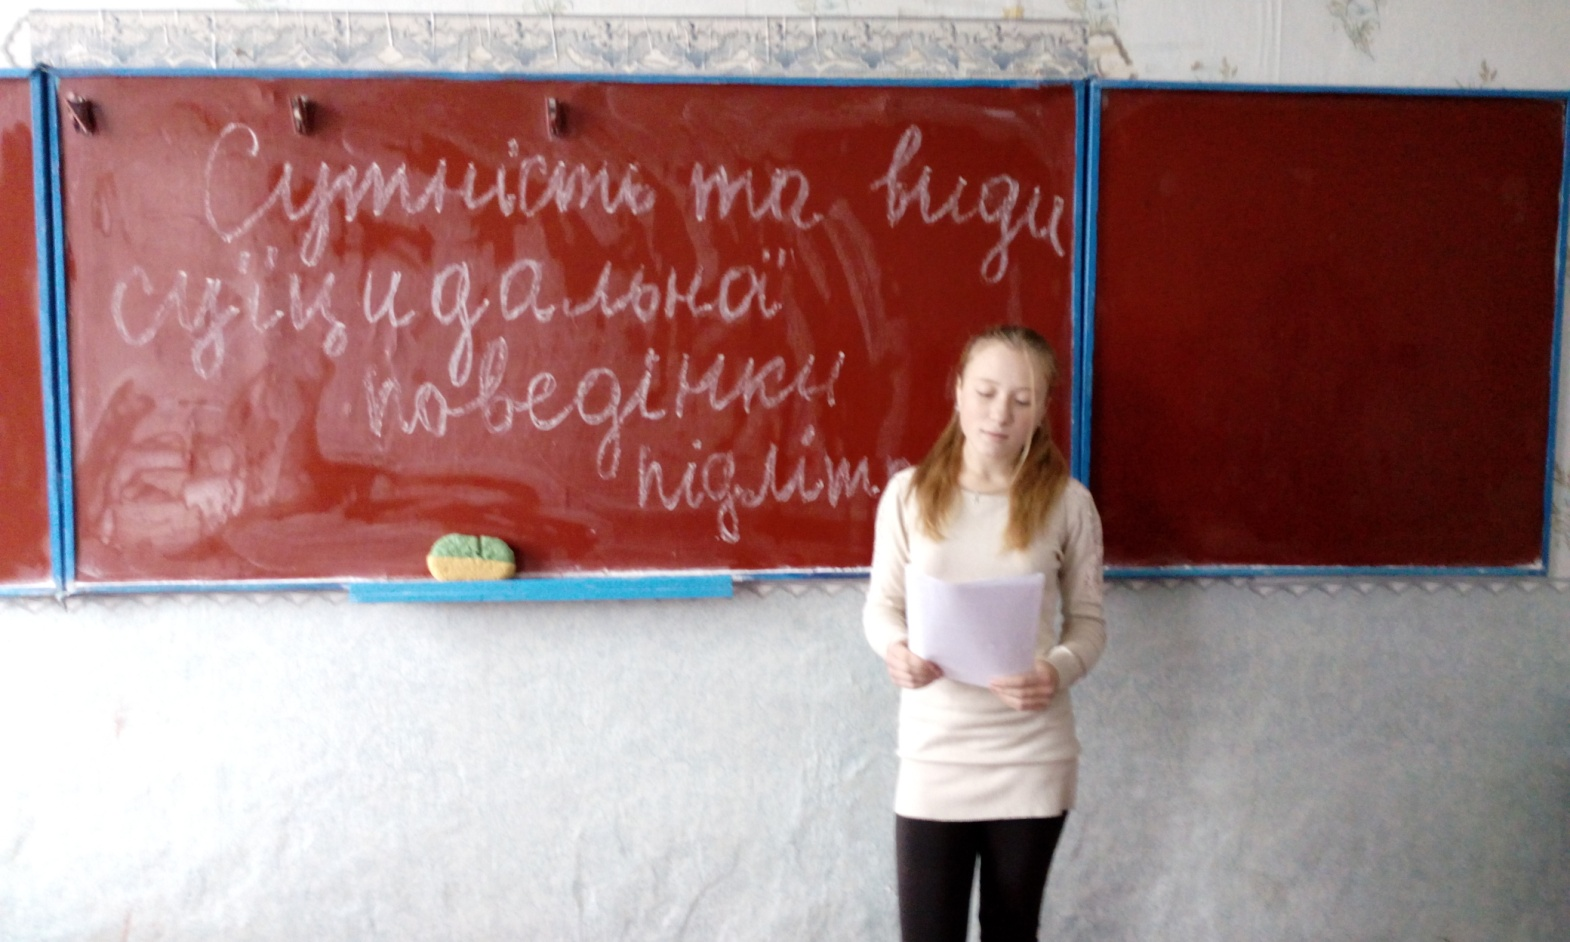 Сутність та види
суїцидальної
поведінки
підліт